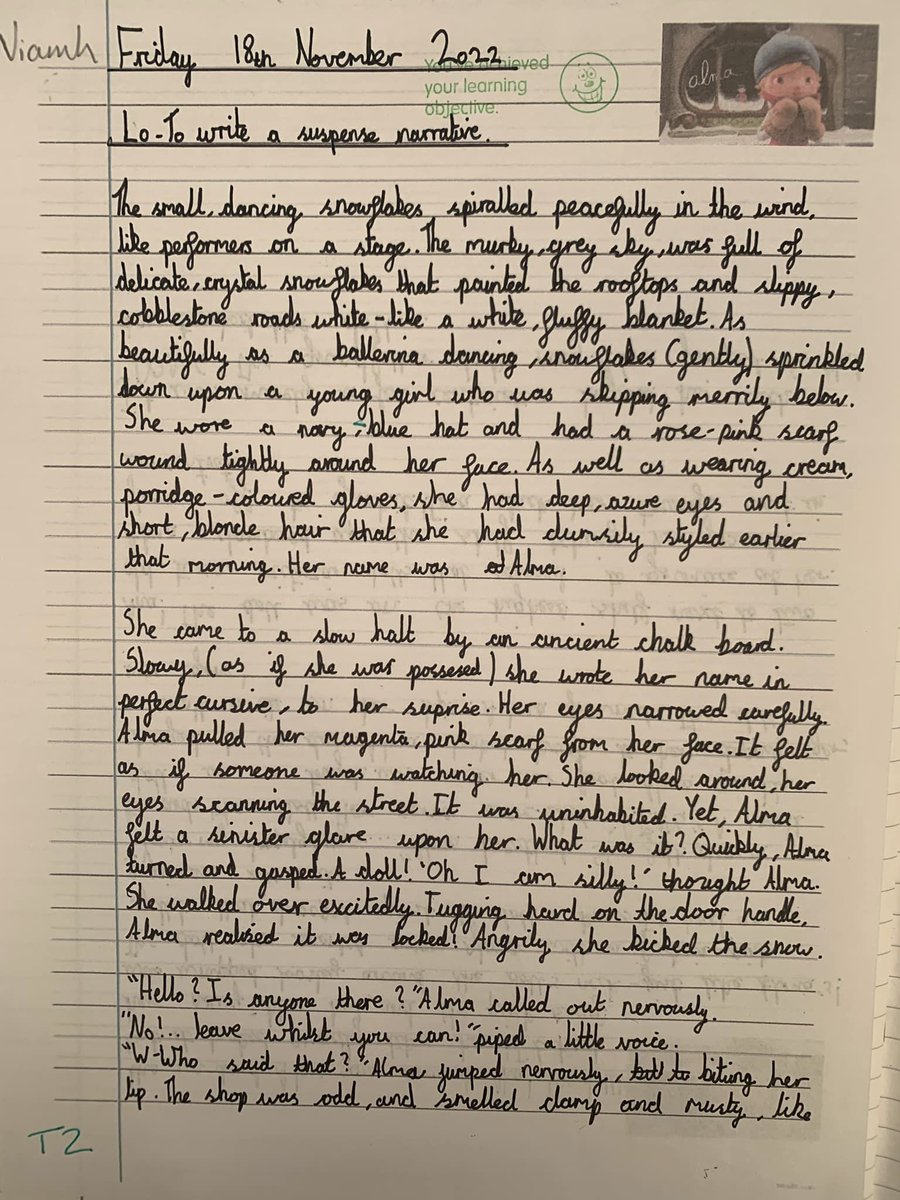 Niamh
Friday 18th November 2022
You've achieved
your learning
objective.
alma
Lo-To write a suspense narrative.
The small, dancing snowflakes spiralled peacefully in the wind,
like performers on a stage. The murky, grey sky, was full of
delicate, crystal snowflakes that painted the rooftops and slippy,
cobblestone roads white-like a white, fluffy blanket. As
beautifully as a ballerina dancing, snowflakes (gently) sprinkled
down upon a young girl who was skipping merrily below.
She wore a navy-blue hat and had a rose-pink scarf
wound tightly around her face. As well as wearing cream,
porridge-coloured gloves, she had deep, azure eyes and
short, blonde hair that she had clumsily styled earlier
that morning. Her name was Alma.
She came to a slow halt by an ancient chalk board.
Slowy, (as if she was possesed) she wrote her name in
perfect cursive, to her suprise. Her eyes narrowed carefully.
Alma pulled her magenta, pink scarf from her face. It felt
as if someone was watching her. She looked around, her
eyes scanning the street. It was uninhabited. Yet, Alma
felt a sinister glare upon her. What was it? Quickly, Alma
turned and gasped. A doll! 'Oh I am silly!' thought Alma.
She walked over excitedly. Tugging hard on the door handle,
Alma realised it was locked! Angrily she kicked the snow.
"Hello? Is anyone there?" Alma called out nervously.
"No!.. leave whilst you can!" piped a little voice.
"W-Who said that?" Alma jumped nervously, biting her
lip. The shop was odd, and smelled damp and musty, like
T2